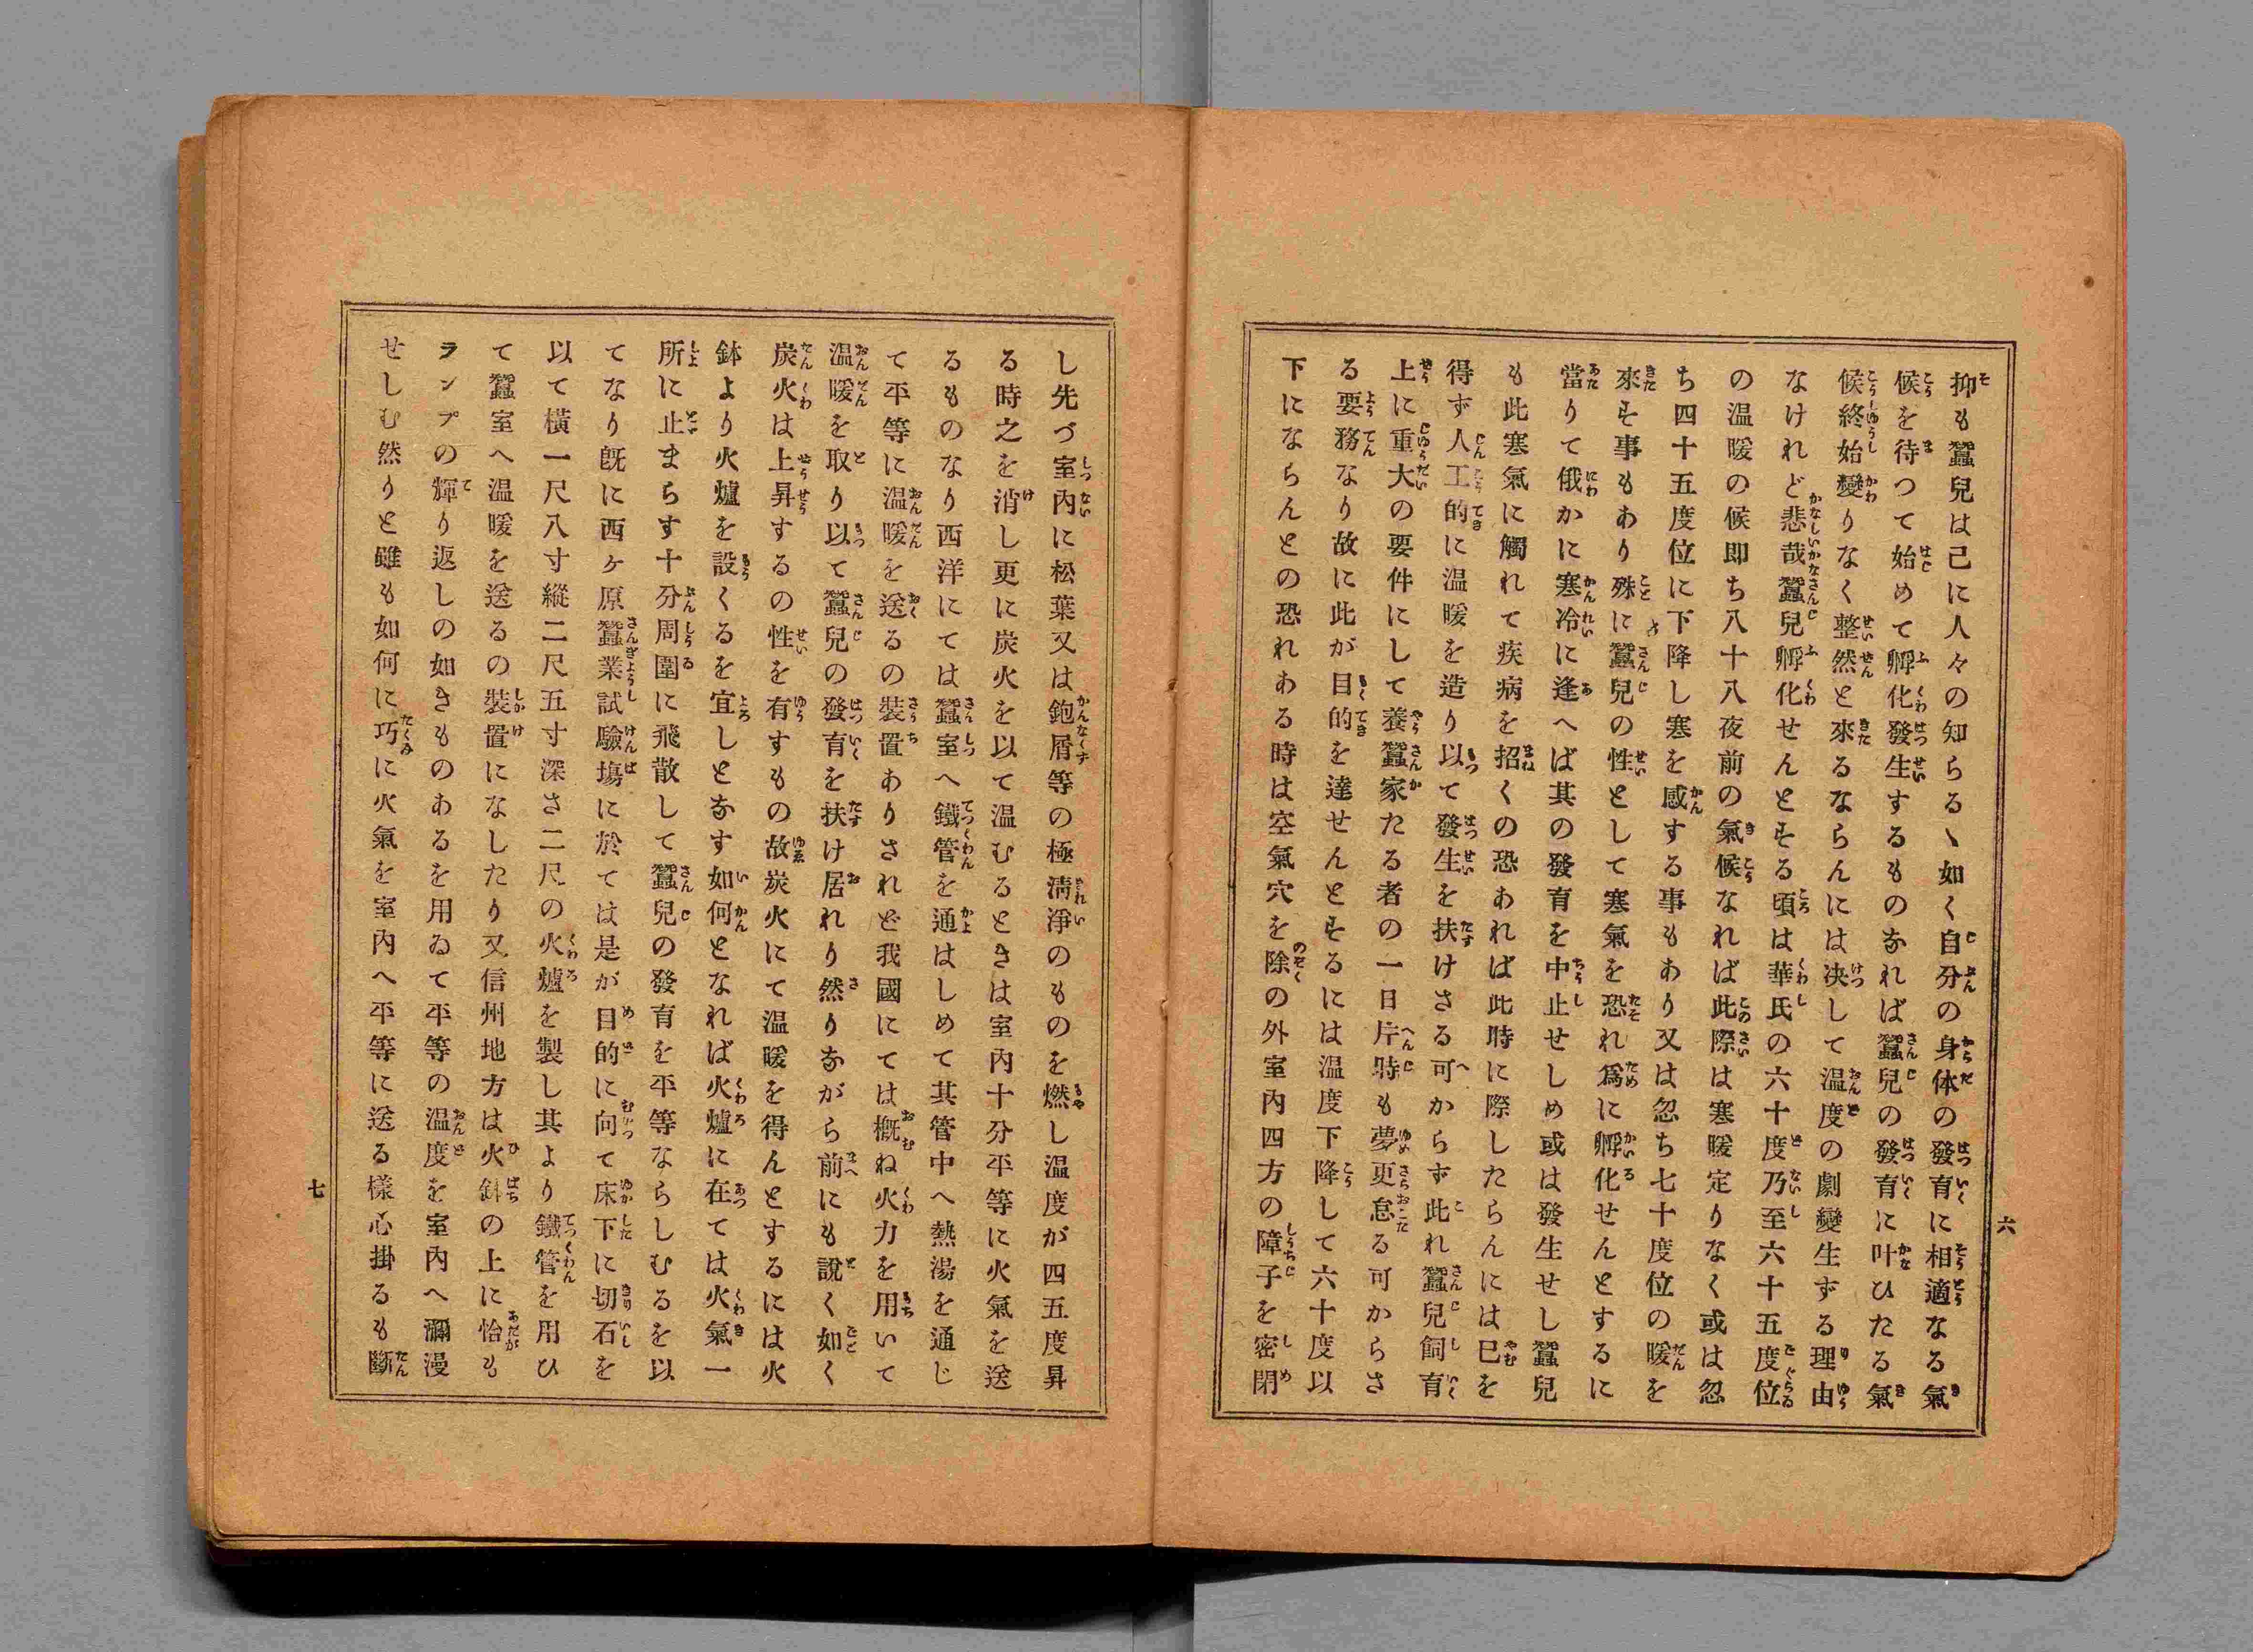 抑も蠶兒は己に人々の知らるゝ如く自分の身体の發育に相適なる氣
候を待つて始めて孵化發生するものなれば蠶兒の發育に叶ひたる氣
候終始變りなく整然と來るならんには决して温度の劇變生ずる理由
なけれど悲哉蠶兒孵化せんとする頃は華氏の六十度乃至六十五度位
の温暖の候即ち八十八夜前の氣候なれば此際は寒暖定りなく或は忽
ち四十五度位に下降し寒を感する事もあり又は忽ち七十度位の暖を
來す事もあり殊に蠶兒の性として寒氣を恐れ爲に孵化せんとするに
當りて俄かに寒冷に逢へば其の發育を中止せしめ或は發生せし蠶兒
も此寒氣に觸れて疾病を招くの恐あれば此時に際したらんには巳を
得ず人工的に温暖を造り以て發生を扶けさる可からず此れ蠶兒飼育
上に重大の要件にして養蠶家たる者の一日片時も夢更怠る可からさ
る要務なり故に此が目的を達せんとするには温度下降して六十度以
下にならんとの恐れある時は空氣穴を除の外室内四方の障子を密閉
六
し先づ室内に松葉又は鉋屑等の極淸淨のものを燃し温度が四五度昇
る時之を消し更に炭火を以て温むるときは室内十分平等に火氣を送
るものなり西洋にては蠶室へ鐵管を通はしめて其管中へ熱湯を通じ
て平等に温暖を送るの裝置ありされど我國にては概ね火力を用いて
温暖を取り以て蠶兒の發育を扶け居れり然りながら前にも說く如く
炭火は上昇するの性を有すもの故炭火にて温暖を得んとするには火
鉢より火爐を設くるを宜しとなす如何となれば火爐に在ては火氣一
所に止まらす十分周圍に飛散して蠶兒の發育を平等ならしむるを以
てなり既に西ヶ原蠶業試驗塲に於ては是が目的に向て床下に切石を
以て横一尺八寸縱二尺五寸深さ二尺の火爐を製し其より鐵管を用ひ
て蠶室へ温暖を送るの裝置になしたり又信州地方は火斜の上に恰も
ランプの輝り返しの如きものあるを用ゐて平等の温度を室内へ瀰漫
せしむ然りと雖も如何に巧に火氣を室内へ平等に送る樣心掛るも斷
七